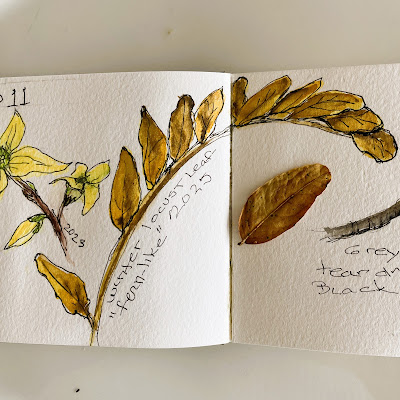 11
2023
Winter locust Leaf
"fern-like" 2025
Grey
tear dr
Black